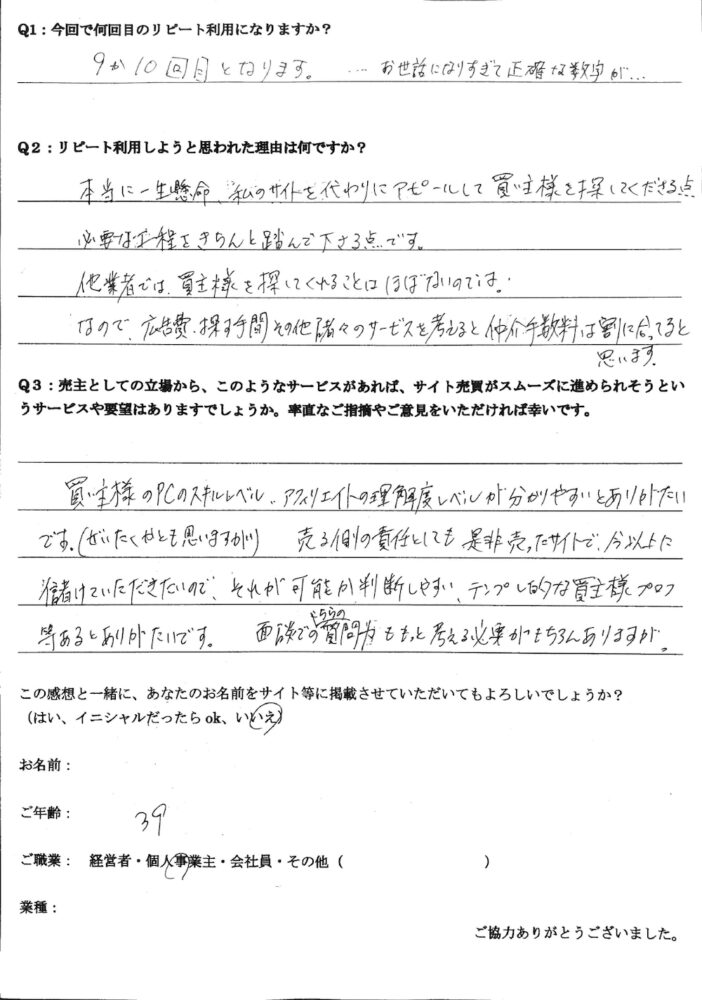 Q1：今回で何回目のリピート利用になりますか？
9か10回目となります。 …お世話になりすぎて正確な数字が…
Q2：リピート利用しようと思われた理由は何ですか？
本当に一生懸命、私のサイトを代わりにアピールして買い主様を探してくださる点
必要な工程をきちんと踏んで下さる点です。
他業者では、買主様を探してくれることはほぼないのでは。
なので、広告費、探す手間その他諸々のサービスを考えると仲介手数料は割に合ってると
思います。
Q3：売主としての立場から、このようなサービスがあれば、サイト売買がスムーズに進められそうとい
うサービスや要望はありますでしょうか。率直なご指摘やご意見をいただければ幸いです。
買い主様のPCのスキルレベル、アフィリエイトの理解度レベルが分かりやすいとありがたい
です。(ぜいたくかとも思いますが) 売る側の責任としても是非売ったサイトで、今以上に
儲けていただきたいので、それが可能か判断しやすい、テンプレ的な買主様プロフ
等あるとありがたいです。 面談での こちらの 質問力ももっと考える必要がもちろんありますが。
この感想と一緒に、あなたのお名前をサイト等に掲載させていただいてもよろしいでしょうか？
（はい、イニシャルだったらok、いいえ）
お名前：
ご年齢： 39
ご職業： 経営者・個人事業主・会社員・その他（ ）
業種：
ご協力ありがとうございました。